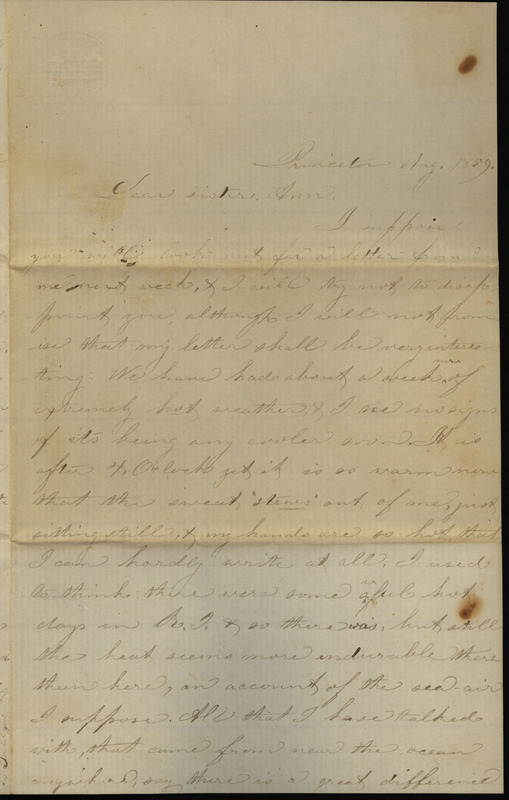 Princeton Aug. 1859.
Dear sister Ann.
I suppose
you will look out for a letter from
me next week, & I will try not to disap-
point you, although I will not prom-
ise that my letter shall be very interes-
ting. We have had about a week more of
extremely hot weather, & I see no signs
of its being any cooler soon. It is
after 4, O'clock yet it is so warm now
that the sweat "stews" out of me, just
sitting still, & my hands are so hot that
I can hardly write at all. I used
to think there were some awful hot
days in R. I. & so there was, but still
the heat seems more endurable there
than here, on account of the sea-air
I suppose. All that I have talked
with, that came from near the ocean
anywhere, say there is a great difference